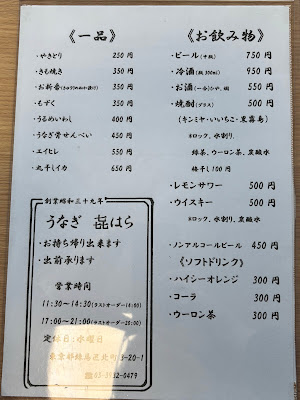 《一品》
・やきとり 250円
・きも焼き 350円
・お新香(きゅうりのぬか漬け) 350円
・もずく 350円
・うるめいわし 400円
・うなぎ骨せんべい 450円
・エイヒレ 550円
・丸干しイカ 650円
創業昭和三十九年
うなぎ 㐂はら
・お持ち帰り出来ます
・出前承ります
営業時間
11:30～14:30(ラストオーダー14:00)
17:00～21:00(ラストオーダー20:00)
定休日:水曜日
東京都練馬区北町3-20-1
03-3932-0479
《お飲み物》
・ビール(中瓶) 750円
・冷酒(瓶300ml) 950円
・お酒(一合)ひや、燗 550円
・焼酎(グラス) 500円
(キンミヤ・いいちこ・黒霧島)
※ロック、水割り、
緑茶、ウーロン茶、炭酸水
梅干し100円
・レモンサワー 500円
・ウイスキー 500円
※ロック、水割り、炭酸水
・ノンアルコールビール 450円
《ソフトドリンク》
・ハイシーオレンジ 300円
・コーラ 300円
・ウーロン茶 300円